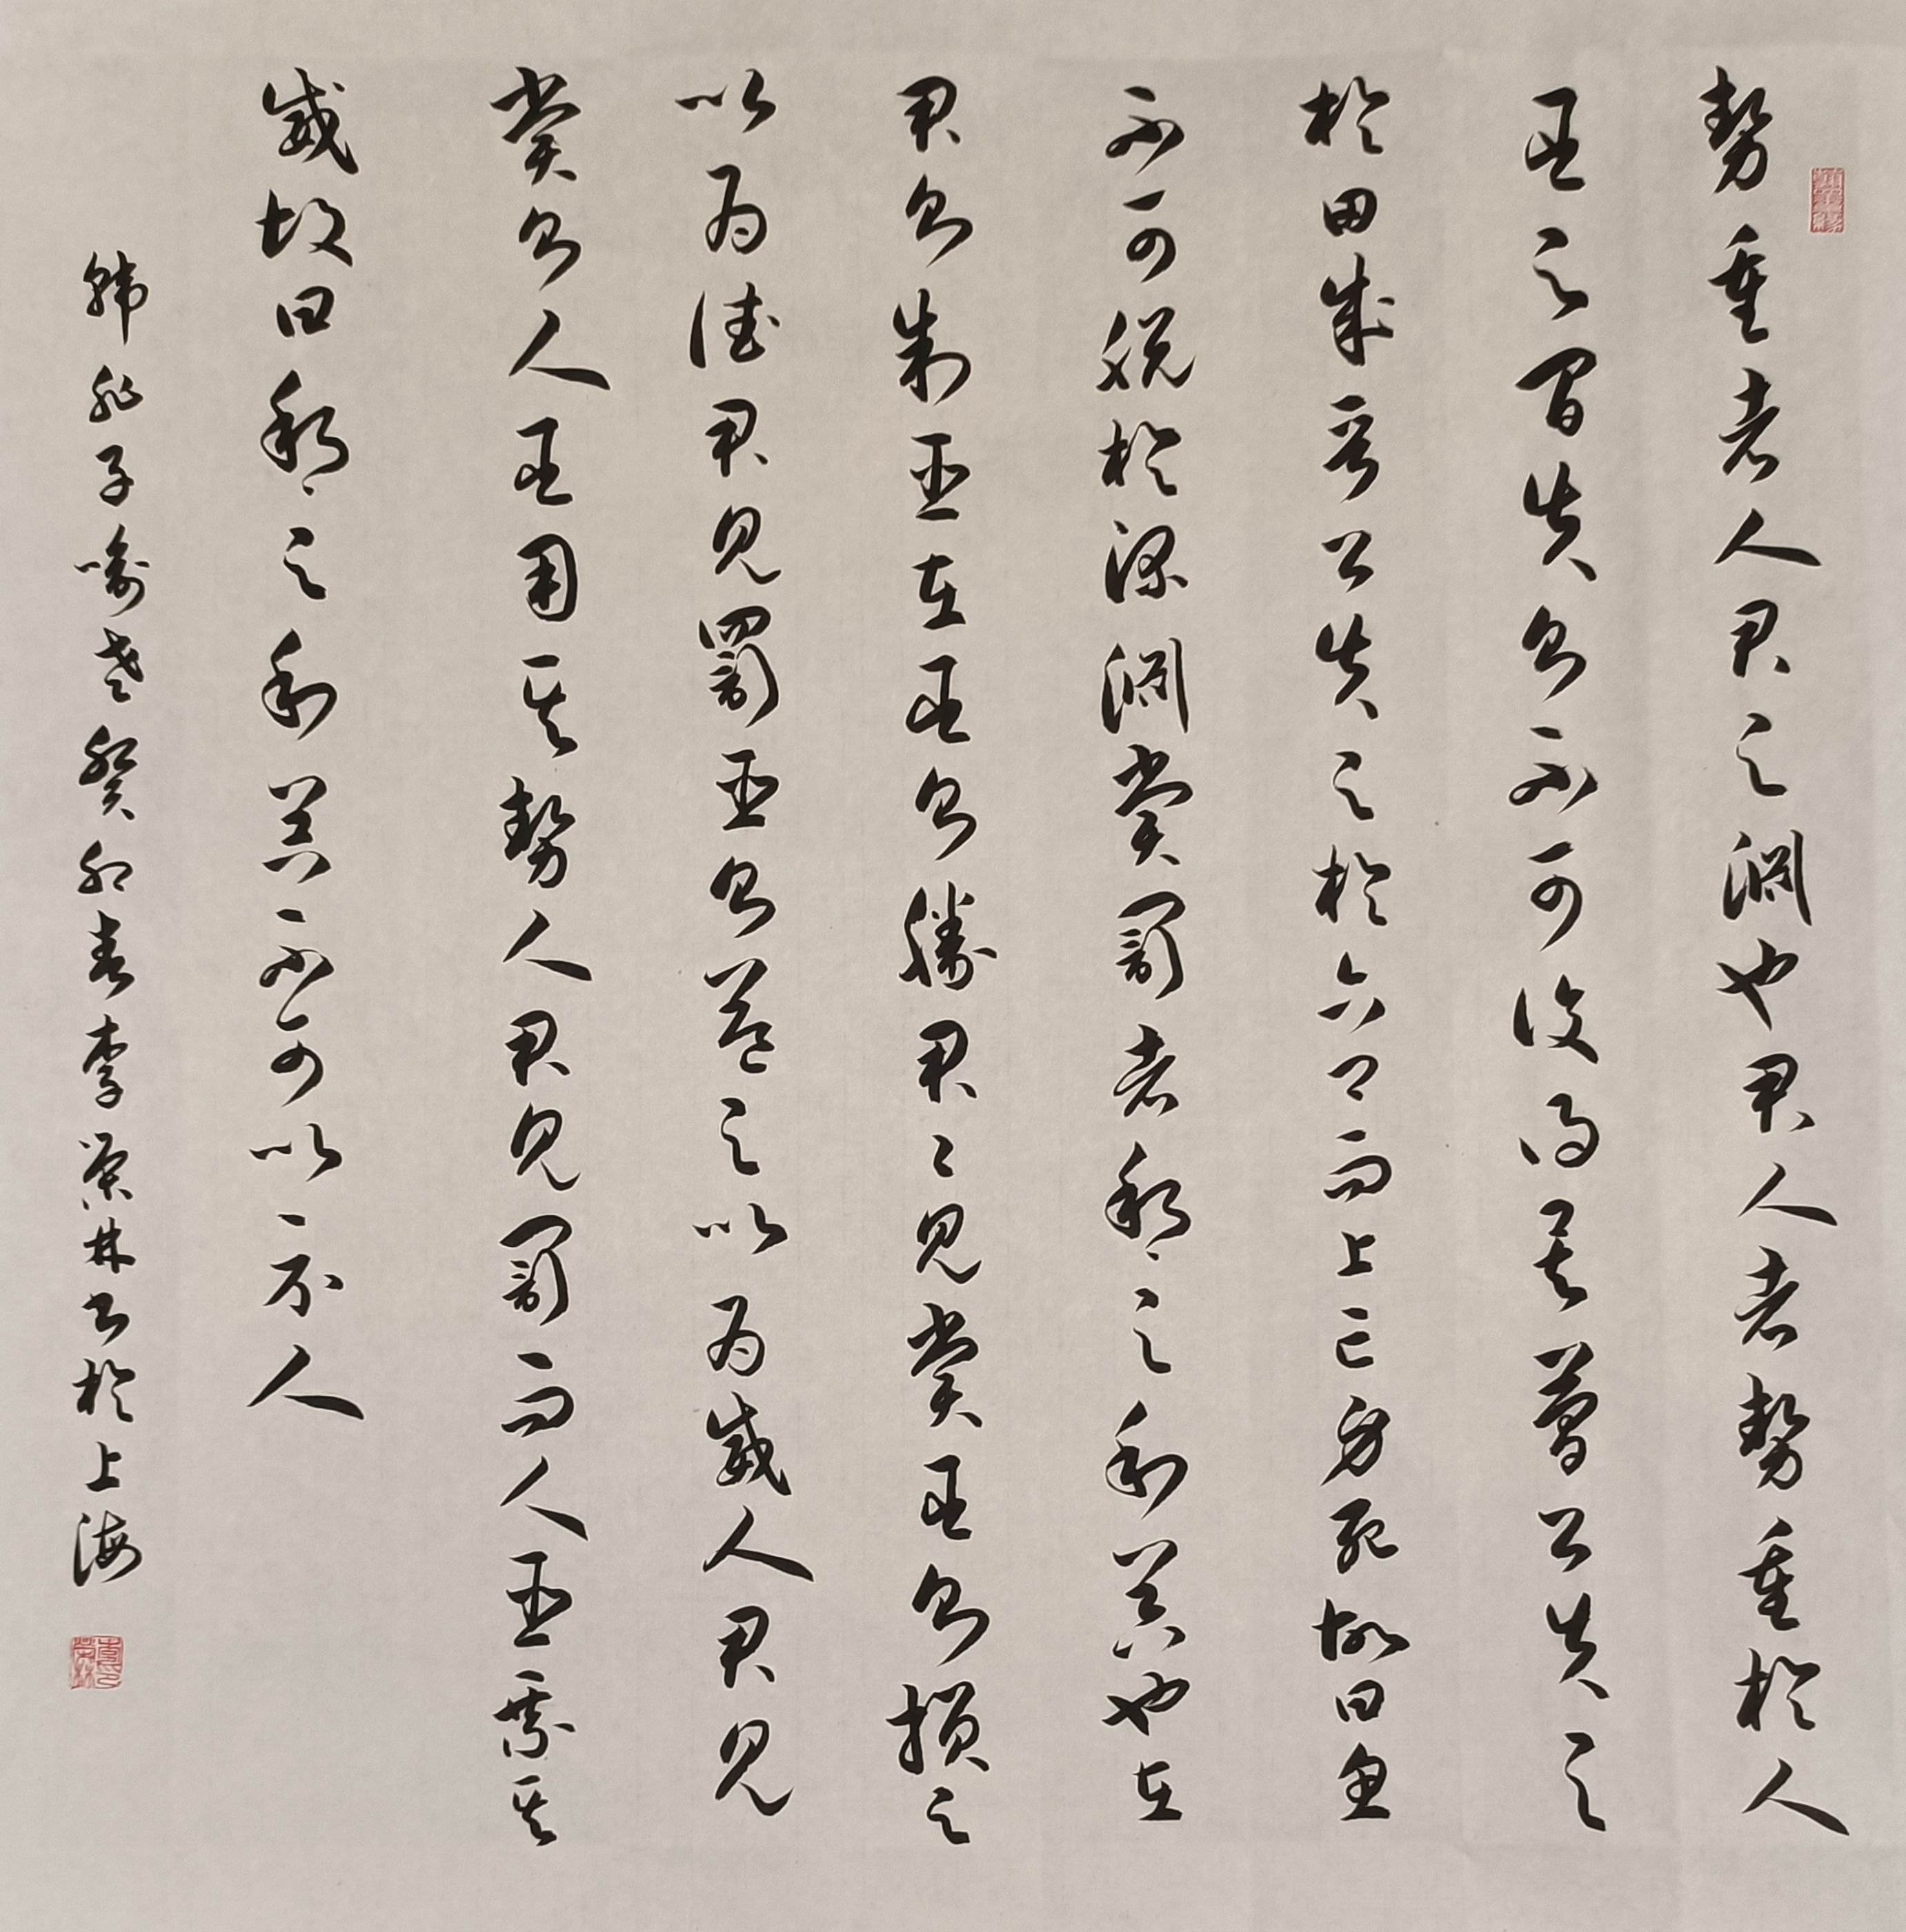 勢重者人君之淵也君人者勢重於人
臣之間失則不可復得矣簡公失之
於田成晉公失之於六卿而上亡身死故曰魚
不可脫於深淵賞罰者邦之利器也在
君則制臣在臣則勝君〻見賞臣則損之
以為德君見罰臣則益之以為威人君見
賞則人臣用其勢人君見罰而人臣乘其
威故曰邦之利器不可以示人
韓非子喻老癸卯春李榮林書於上海